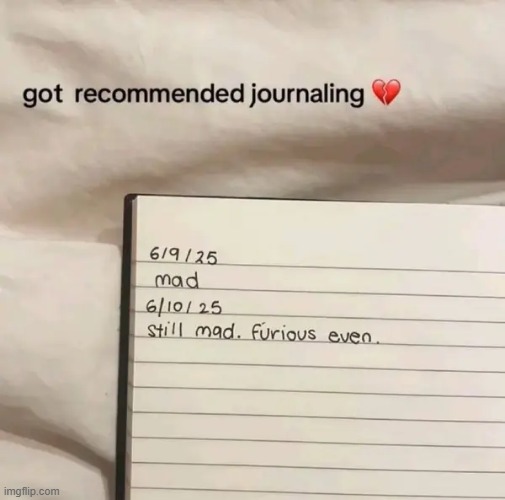 got recommended journaling 💔
6/9/25
mad
6/10/25
still mad. furious even.
imgflip.com